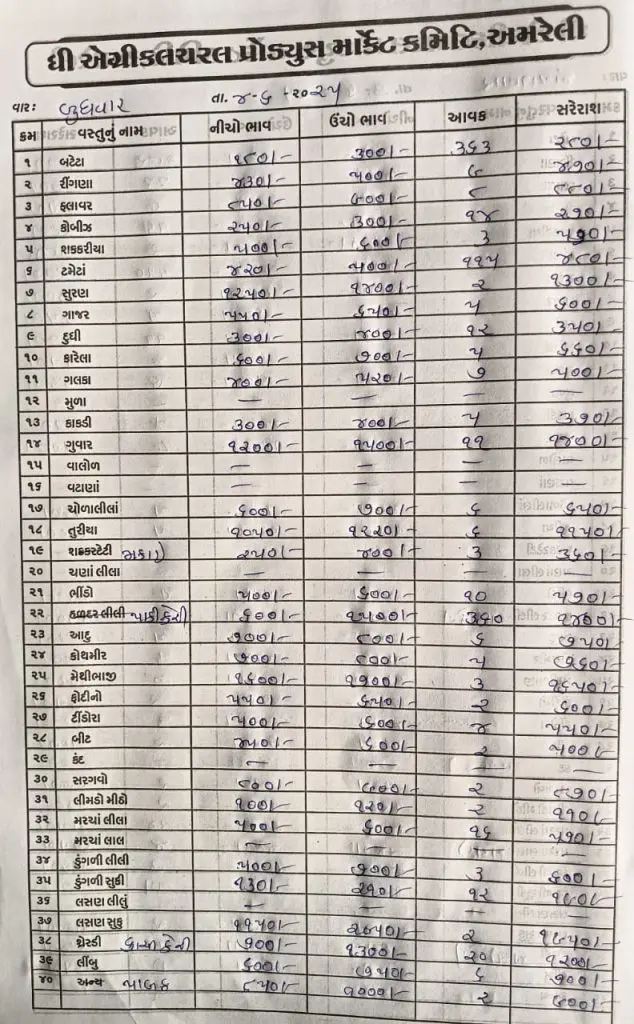 ધી એગ્રીકલચરલ પ્રોડ્યુસ માર્કેટ કમિટિ,અમરેલી
વારઃ બુધવાર તા. ૪-૬-૨૦૨૫
ક્રમ વસ્તુનું નામ નીચો ભાવ ઉંચો ભાવ આવક સરેરાશ
૧ બટેટા ૧૮૦/- ૩૦૦/- ૩૬૩ ૨૮૦/-
૨ રીંગણા ૪૩૦/- ૫૦૦/- ૯ ૪૭૦/-
૩ ફલાવર ૮૫૦/- ૯૦૦/- ૮ ૮૮૦/-
૪ કોબીઝ ૨૫૦/- ૩૦૦/- ૧૪ ૨૭૦/-
૫ શકકરીયા ૫૦૦/- ૬૦૦/- ૩ ૫૭૦/-
૬ ટમેટાં ૪૨૦/- ૫૦૦/- ૧૧૫ ૪૮૦/-
૭ સુરણ ૧૨૫૦/- ૧૪૦૦/- ૨ ૧૩૦૦/-
૮ ગાજર ૫૫૦/- ૬૫૦/- ૫ ૬૦૦/-
૯ દુધી ૩૦૦/- ૪૦૦/- ૧૨ ૩૫૦/-
૧૦ કારેલા ૬૦૦/- ૭૦૦/- ૫ ૬૬૦/-
૧૧ ગલકા ૪૦૦/- ૫૨૦/- ૭ ૫૦૦/-
૧૨ મુળા — — — —
૧૩ કાકડી ૩૦૦/- ૪૦૦/- ૫ ૩૭૦/-
૧૪ ગુવાર ૧૨૦૦/- ૧૫૦૦/- ૧૧ ૧૪૦૦/-
૧૫ વાલોળ — — — —
૧૬ વટાણાં — — — —
૧૭ ચોળાલીલાં ૬૦૦/- ૭૦૦/- ૬ ૬૫૦/-
૧૮ તુરીયા ૧૦૫૦/- ૧૨૨૦/- ૬ ૧૧૫૦/-
૧૯ શકકરટેટી મકાઇ ૨૫૦/- ૪૦૦/- ૩ ૩૬૦/-
૨૦ ચણાં લીલા — — — —
૨૧ ભીંડો ૫૦૦/- ૬૦૦/- ૧૦ ૫૭૦/-
૨૨ હળદર લીલી પાકી કેરી ૬૦૦/- ૧૫૦૦/- ૩૬૦ ૧૪૦૦/-
૨૩ આદુ ૭૦૦/- ૮૦૦/- ૬ ૭૫૦/-
૨૪ કોથમીર ૭૦૦/- ૮૦૦/- ૫ ૭૬૦/-
૨૫ મેથીભાજી ૧૬૦૦/- ૧૭૦૦/- ૩ ૧૬૫૦/-
૨૬ ફોદીનો ૫૫૦/- ૬૫૦/- ૨ ૬૦૦/-
૨૭ ટીંડોરા ૫૦૦/- ૬૦૦/- ૪ ૫૫૦/-
૨૮ બીટ ૪૫૦/- ૬૦૦/- ૨ ૫૦૦/-
૨૯ કંદ — — — —
૩૦ સરગવો ૮૦૦/- ૯૦૦/- ૨ ૮૭૦/-
૩૧ લીમડો મીઠો ૧૦૦/- ૧૨૦/- ૨ ૧૧૦/-
૩૨ મરચાં લીલા ૫૦૦/- ૬૦૦/- ૧૬ ૫૭૦/-
૩૩ મરચાં લાલ — — — —
૩૪ ડુંગળી લીલી ૫૦૦/- ૭૦૦/- ૩ ૬૦૦/-
૩૫ ડુંગળી સુકી ૧૩૦/- ૨૧૦/- ૧૨ ૧૯૦/-
૩૬ લસણ લીલું — — — —
૩૭ લસણ સુકુ ૧૧૫૦/- ૨૦૫૦/- ૨ ૧૯૫૦/-
૩૮ કાચી કેરી ૭૦૦/- ૧૩૦૦/- ૨૦ ૧૨૦૦/-
૩૯ લીંબુ ૬૦૦/- ૭૫૦/- ૬ ૭૦૦/-
૪૦ અન્ય પાલક ૮૫૦/- ૧૦૦૦/- ૨ ૯૦૦/-